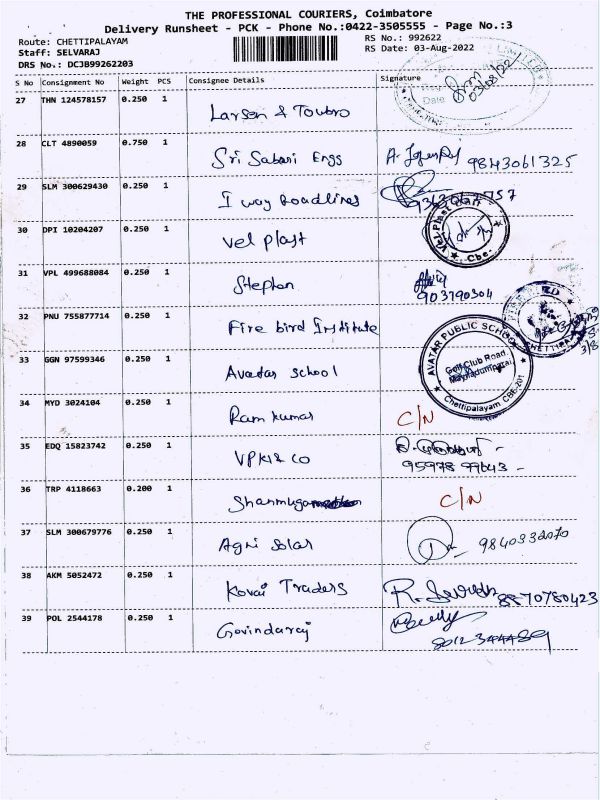 THE PROFESSIONAL COURIERS, Coimbatore
Delivery Runsheet - PCK - Phone No.:0422-3505555 - Page No.:3
Route: CHETTIPALAYAM
RS No.: 992622
Staff: SELVARAJ
RS Date: 03-Aug-2022
DRS No.: DCJB99262203
S No Consignment No Weight PCS Consignee Details Signature
Date 03/08/22
27 THN 124578157 0.250 1 Larsen & Toubro
28 CLT 4890059 0.750 1 Sri Sabari Engs 9843061325
29 SLM 300629430 0.250 1 I way Roadlines
30 DPI 10204207 0.250 1 Vel plast
Vel Plast Cbe.
31 VPL 499688084 0.250 1 Stephan
903790304
32 PNU 755877714 0.250 1 Fire bird Institute
33 GGN 97599346 0.250 1 Avatar School
AVATAR PUBLIC SCHOOL
Golf Club Road,
Chettipalayam, CBE-201
34 MYD 3024104 0.250 1 Ram kumar C/N
35 EDQ 15823742 0.250 1 VPKR & CO
36 TRP 4118663 0.200 1 C/N
37 SLM 300679776 0.250 1 Agni Solar 9840332070
38 AKM 5052472 0.250 1 Kovai Traders 8870780423
39 POL 2544178 0.250 1 Govindaraj